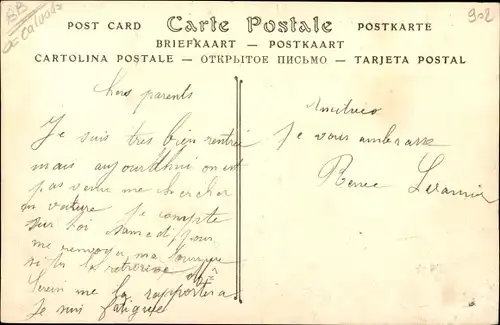 BB
Calvados
902
POST CARD Carte Postale POSTKARTE
BRIEFKAART — POSTKAART
CARTOLINA POSTALE — ОТКРЫТОЕ ПИСЬМО — TARJETA POSTAL
chers parents
Je suis tres bien rentré
mais aujourdhui on est
pas venu me chercher
en voiture je compte
sur toi samedi pour
me renvoyer ma fourrure
si tu la retrouve
me la rapportera
Je suis fatiguée
je vous embrasse
Renee